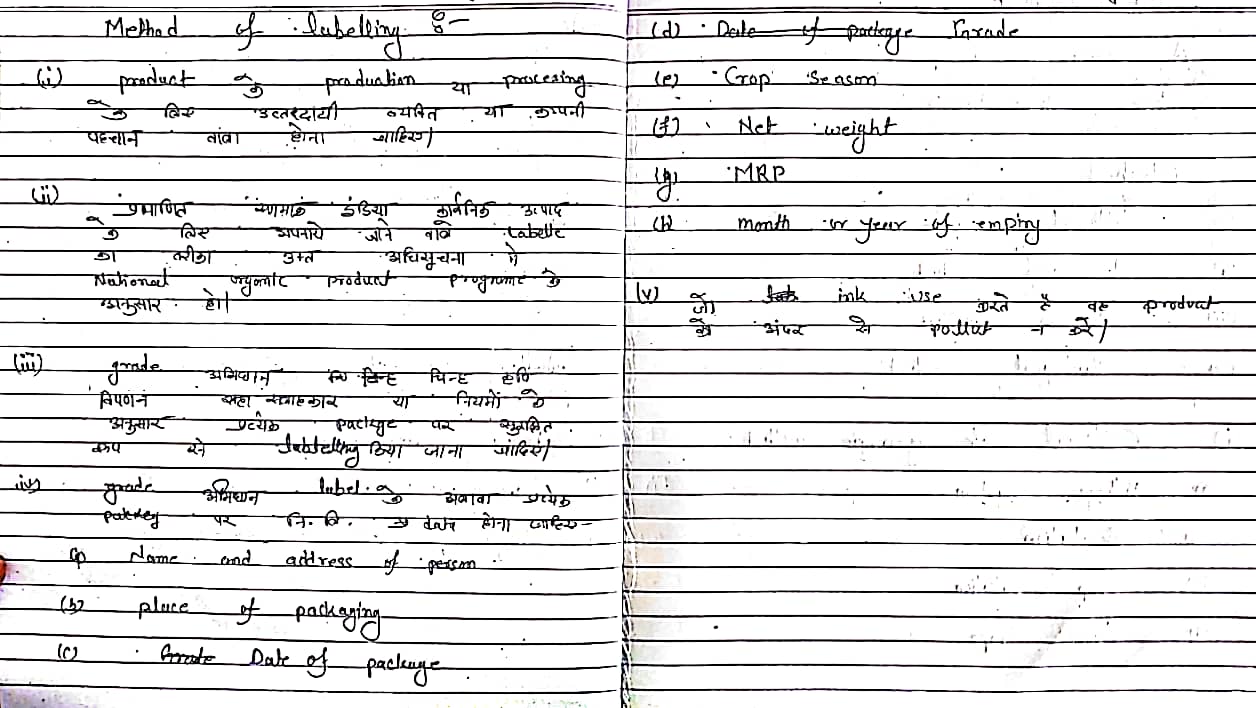 Method of labelling :-
(i) product के production या procesing
के लिए उत्तरदायी व्यक्ति या कम्पनी
पहचान वाला होना चाहिए।
(ii) प्रमाणित इंडिया कार्बनिक उत्पाद
के लिए अपनाये जाने वाले
का तरीका उक्त अधिसूचना मे
National organic product programe के
अनुसार हो।
(iii) grade अभिधान चिन्ह कृषि
विपणन सलाहकार या नियमों के
अनुसार प्रत्येक package पर मुद्रित
रूप से labelling किया जाना चाहिए।
(iv) grade अभिधान label के अलावा प्रत्येक
पर नि. लि. data होना चाहिए-
Name and address of person
(b) place of packaging
(c) Date of package
(d) Grade
(e) Crop Season
(f) Net weight
(g) MRP
(h) month or year of empiry
(v) जो ink use करते है वह product
को अंदर से pollut न करे।